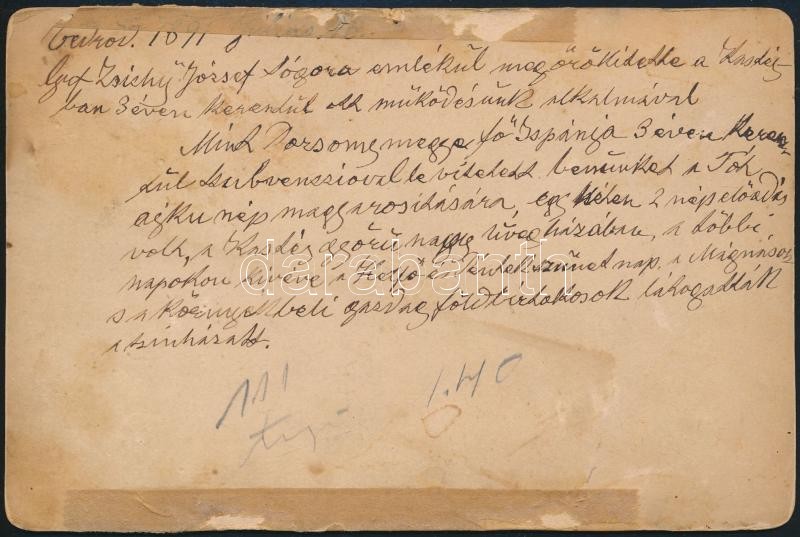 1891
Gróf Zsichy József sógora emlékül megörökidette a Kastély
ban 3 éven keresztül ott működésünk alkalmával
Mint Porsomymegye fő Ispánja 3 éven keresz
tül subvenszioval le vitetett benünket a Tóh
ajku nép magyarositására, egy héten 2 népelőadás
volt, a Kastély nagy üvegházában, a többi
napokon kivéve a Hetfő és Péntek szünet nap. a Mágnások
s a környékbeli gazdag földbirtokosok látogatták
a szinházatt.
111 1.40
darabanth